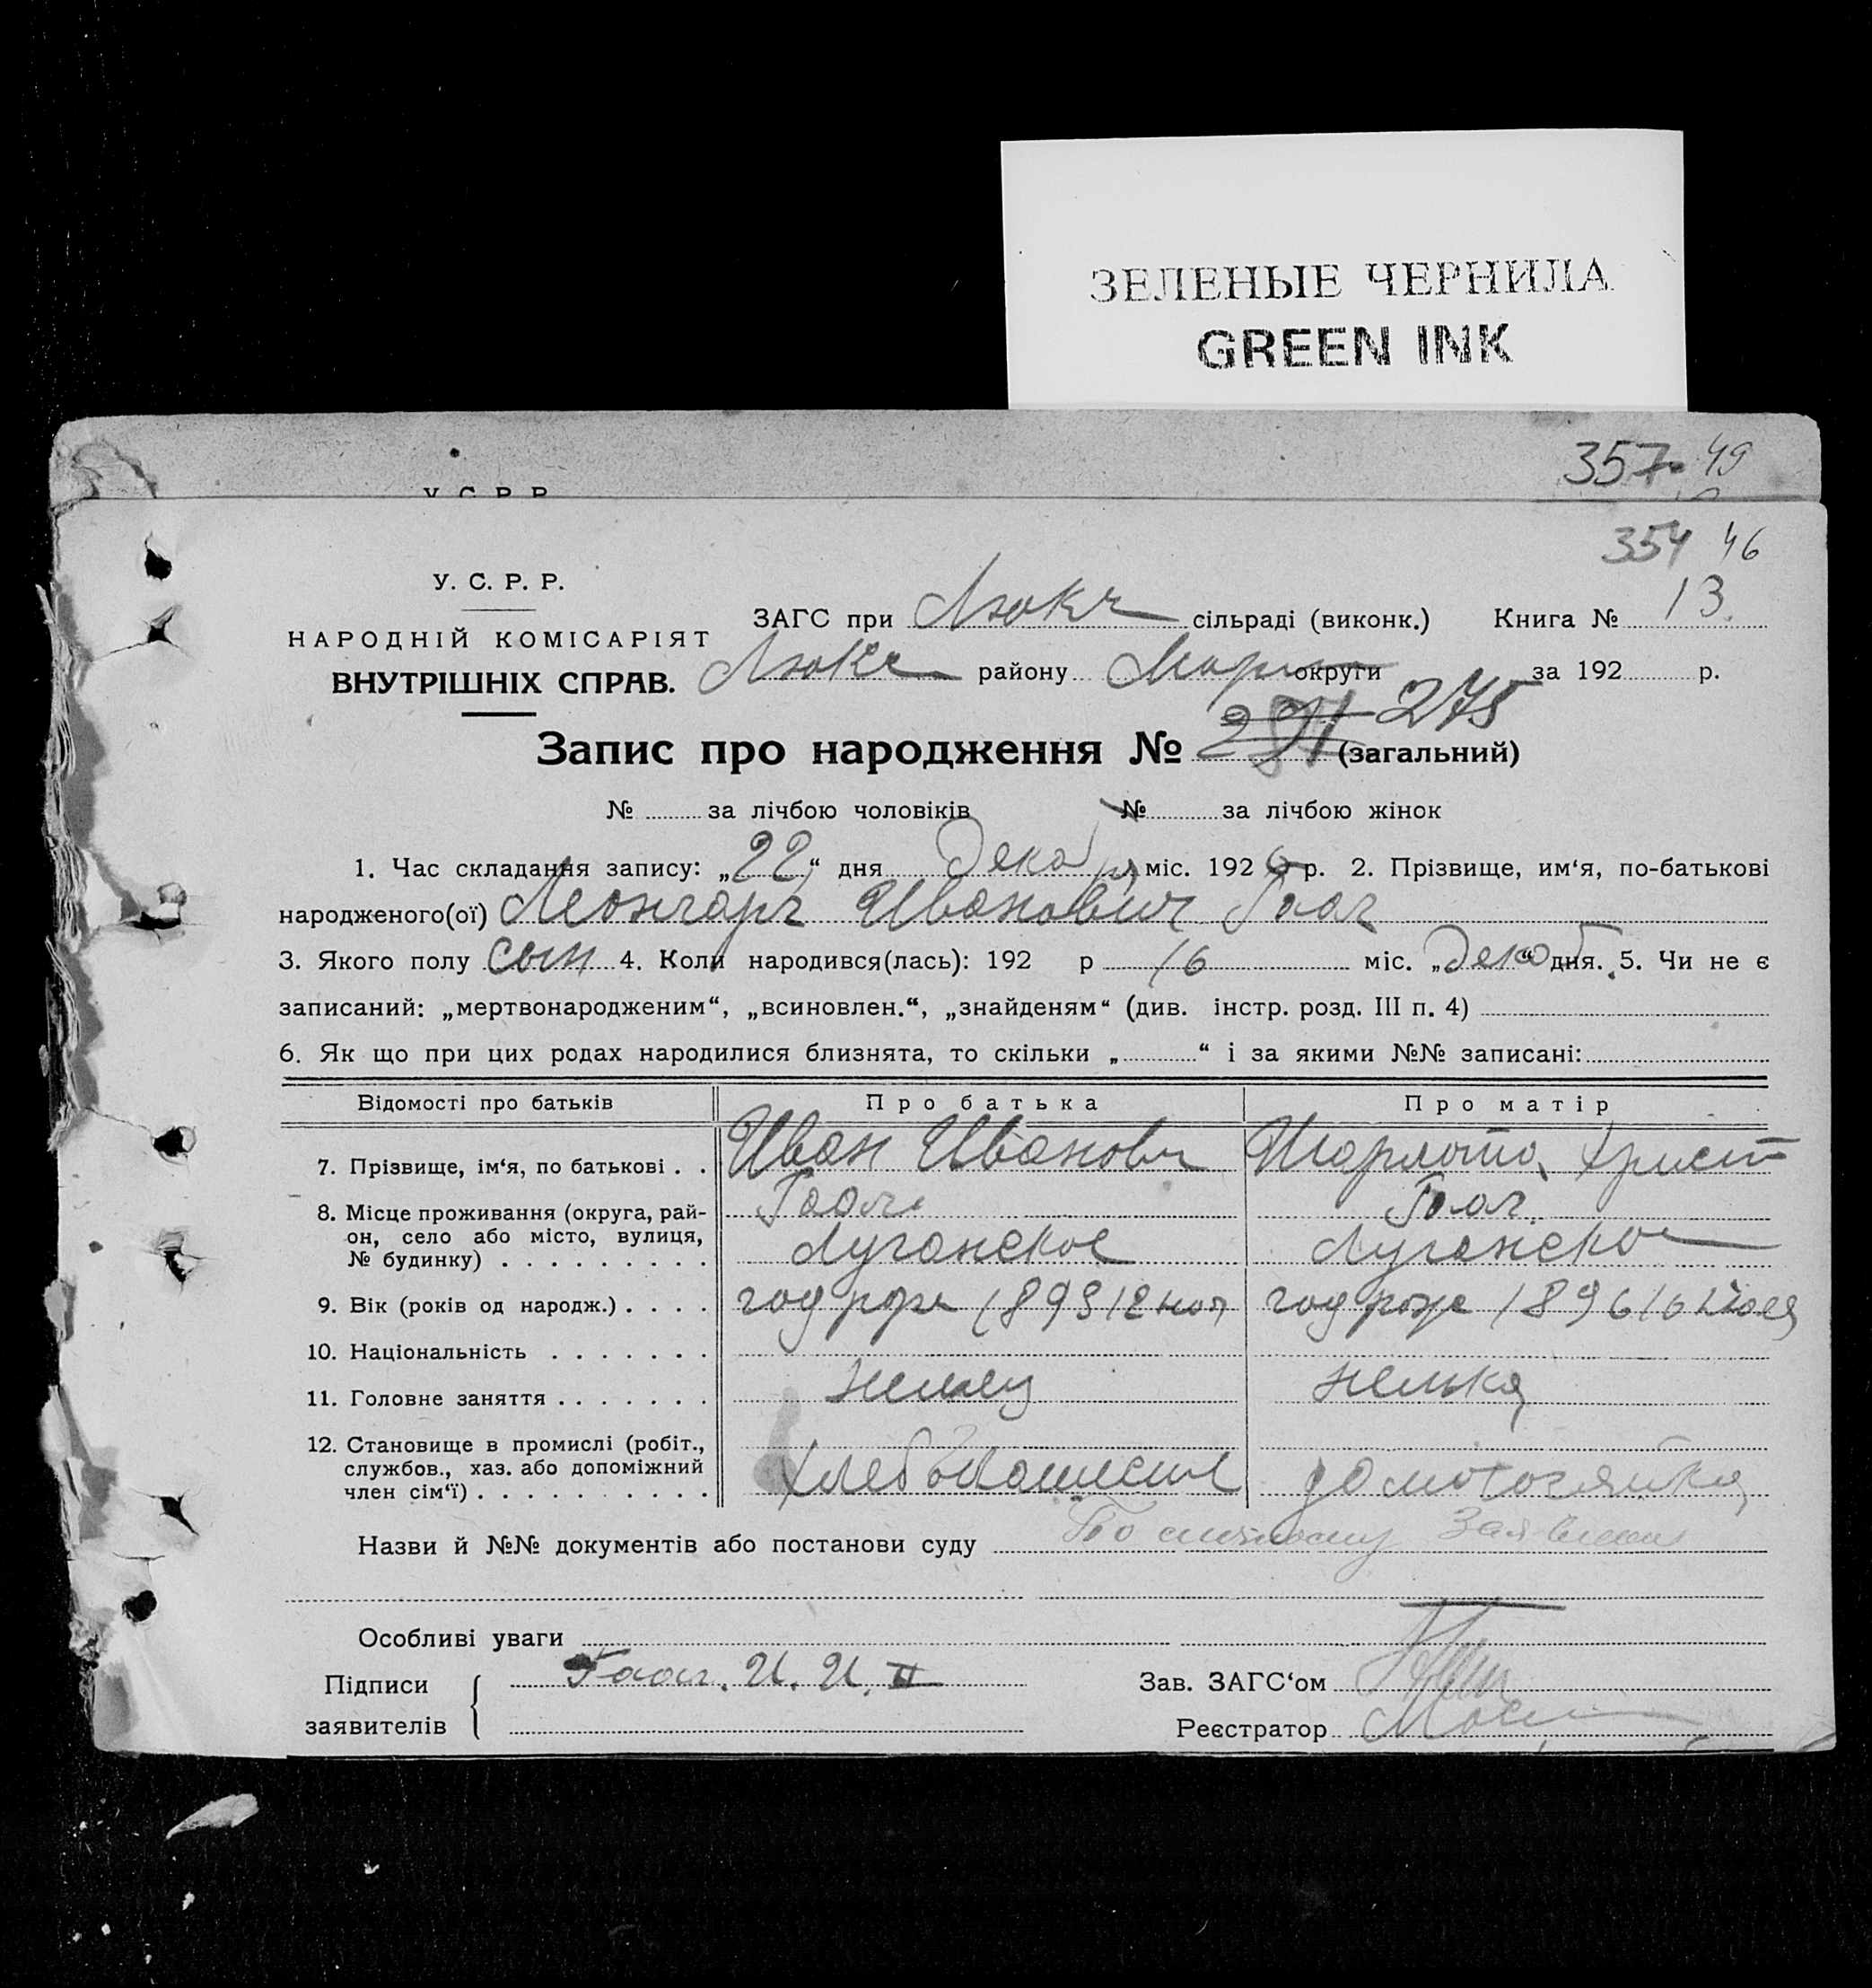 ЗЕЛЕНЫЕ ЧЕРНИЛА
GREEN INK
357 49
У. С. Р. Р.
354 46
У. С. Р. Р.
НАРОДНІЙ КОМІСАРІЯТ
ВНУТРІШНІХ СПРАВ.
ЗАГС при Люкс сільраді (виконк.) Книга № 13.
Люкс району Мари округи за 192 р.
Запис про народження № 275 (загальний)
№ за лічбою чоловіків № за лічбою жінок
1. Час складання запису: „22“ дня Декабря міс. 1926 р. 2. Прізвище, им‘я, по-батькові
народженого(ої) Леонгард Иванович Гааг
3. Якого полу сын 4. Коли народився(лась): 192 р 16 міс. „декаб“ дня. 5. Чи не є
записаний: „мертвонародженим“, „всиновлен.“, „знайденям“ (див. інстр. розд. III п. 4)
6. Як що при цих родах народилися близнята, то скільки „ “ і за якими №№ записані:
Відомості про батьків Про батька Про матір
7. Прізвище, ім‘я, по батькові . . Иван Иванович Шарлота Христ
Гааг Гааг
8. Місце проживання (округа, рай-
он, село або місто, вулиця,
№ будинку) . . . . . . . . . Луганское Луганское
9. Вік (років од народж.) . . . . год рож 1893 12 ноя год рож 1896 16 Июля
10. Національність . . . . . . .
11. Головне заняття . . . . . . . немец немка
12. Становище в промислі (робіт.,
службов., хаз. або допоміжний
член сім‘ї) . . . . . . . . . . хлебопашест домохозяйка
Назви й №№ документів або постанови суду По личному Заявлению
Особливі уваги
Підписи
заявителів
Гааг. И. И. II
Зав. ЗАГС‘ом
Реєстратор